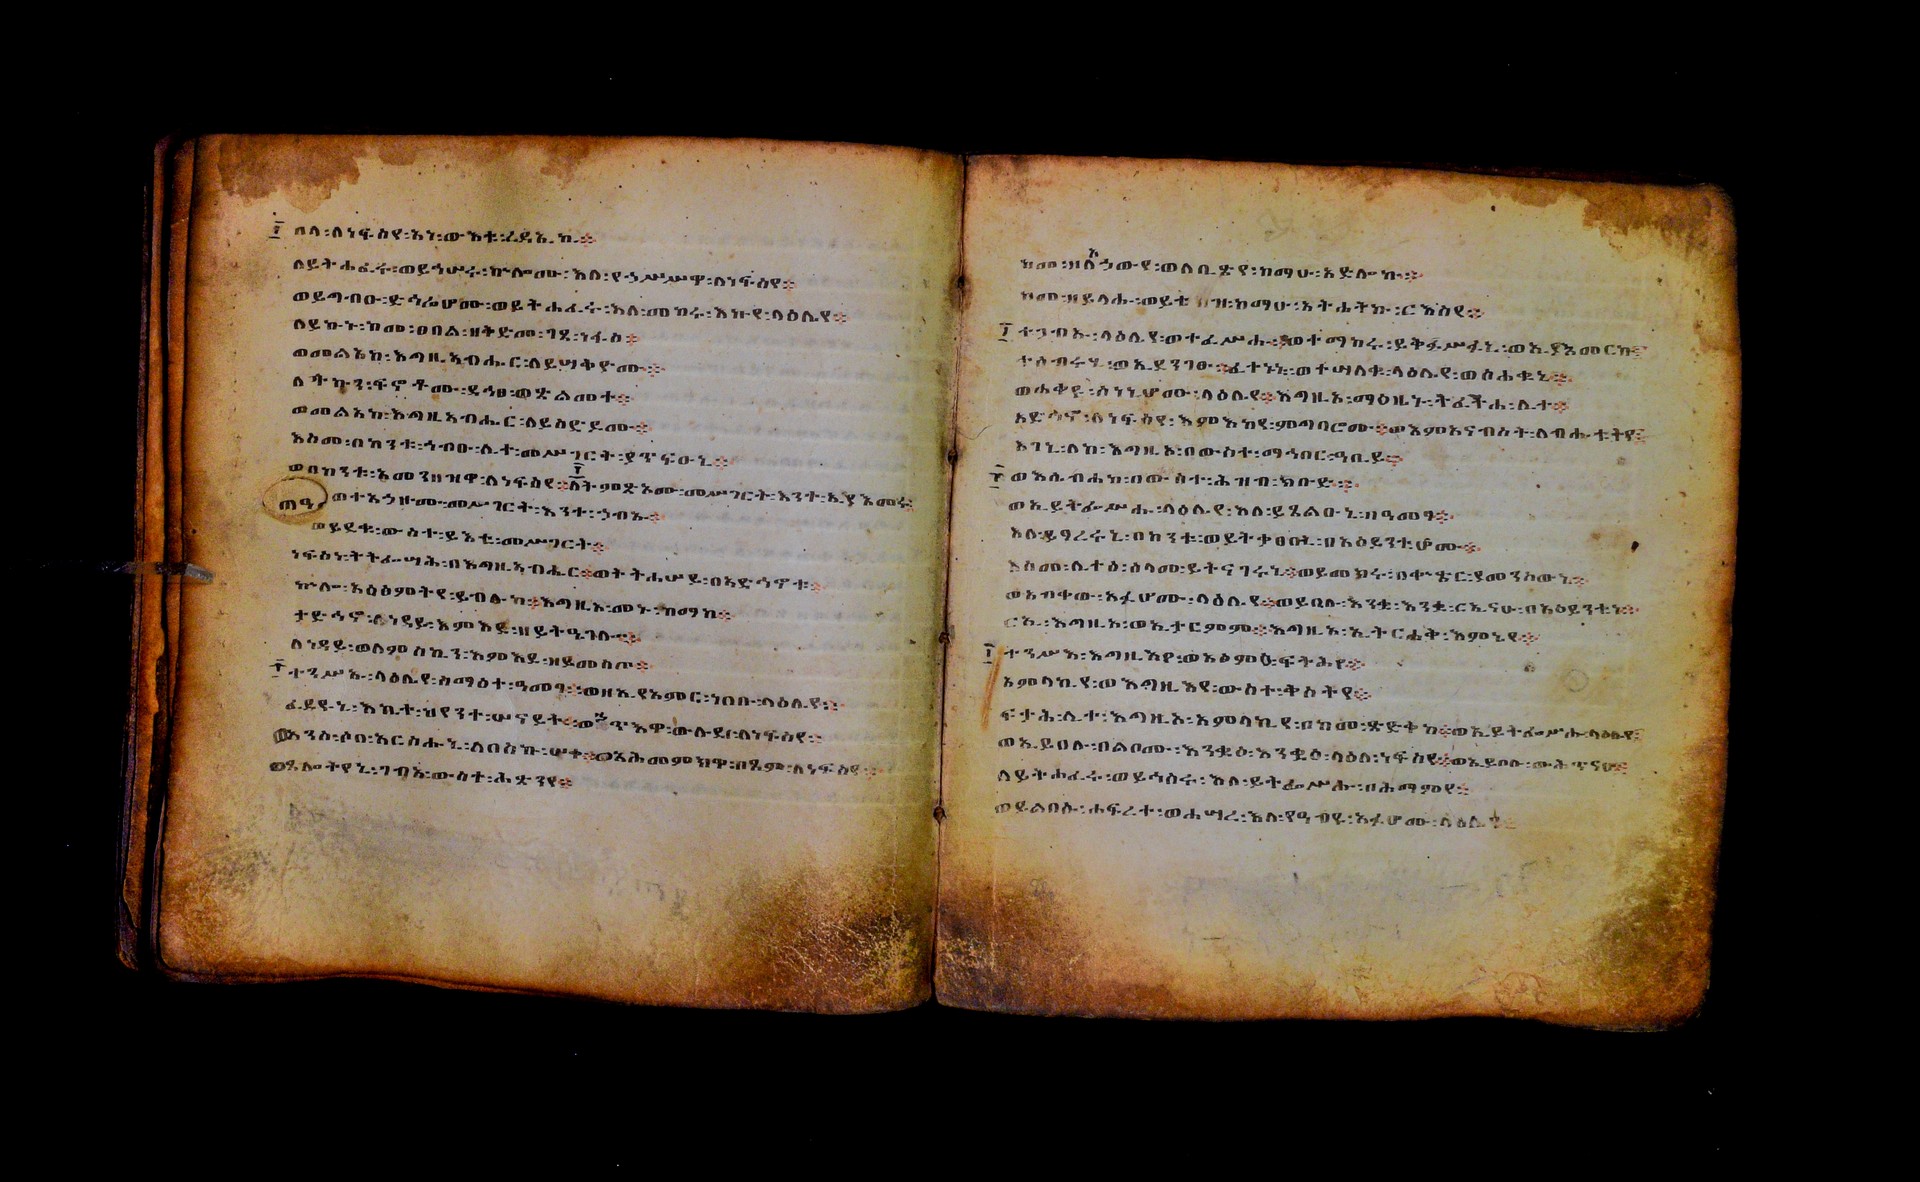 በላ፡ለነፍስየ፡አነ፡ውእቱ፡ረዳኢኪ፨
ለይትሐፈሩ፡ወይኅሠሩ፡ኵሎሙ፡እለ፡የኀሥሥዋ፡ለነፍስየ፨
ወይግብኡ፡ድኅሬሆሙ፡ወይትሐፈሩ፡እለ፡መከሩ፡እኩየ፡ላዕሌየ፨
ለይኩኑ፡ከመ፡ፀበል፡ዘቅድመ፡ገጸ፡ነፋስ፨
ወመልአከ፡እግዚአብሔር፡ለይሣቅዮሙ፨
ለትኩን፡ፍኖቶሙ፡ዳኅፀ፡ወጽልመተ፨
ወመልአከ፡እግዚአብሔር፡ለይስድዶሙ፨
እስመ፡በከንቱ፡ኀብኡ፡ሊተ፡መሥገርት፡ያጥፍኡኒ፨
ወበከንቱ፡አመንዘዝዋ፡ለነፍስየ፨ለትምጽኦሙ፡መሥገርት፡እንተ፡ኢያእመሩ፨
ወተአኅዞሙ፡መሥገርት፡እንተ፡ኀብኡ፨
ወይደቁ፡ውስተ፡ይእቲ፡መሥገርት፨
ነፍስየ፡ትትፌሣሕ፡በእግዚአብሔር፨ወትትሐሠይ፡በአድኅኖቱ፨
ኵሉ፡አዕፅምትየ፡ይብሉከ፨እግዚኦ፡መኑ፡ከማከ፨
ታድኅኖ፡ለነዳይ፡እምእደ፡ዘይትዔገሎ፨
ለነዳይ፡ወለምስኪን፡እምእደ፡ዘይመስጦ፨
ተንሥኡ፡ላዕሌየ፡ሰማዕተ፡ዓመፃ፨ወዘኢየአምር፡ነበቡ፡ላዕሌየ፨
ፈደዩኒ፡እኪተ፡ህየንተ፡ሠናይት፨ወአጥአዋ፡ውሉደ፡ለነፍስየ፨
ወአንሰ፡ሶበ፡አርስሑኒ፡ለበስኩ፡ሠቀ፨ወአሕመምክዋ፡በጾም፡ለነፍስየ፨
ወጸሎትየኒ፡ገብአ፡ውስተ፡ሕፅንየ፨
ከመ፡ዘለእኁየ፡ወለቢጽየ፡ከማሁ፡አድሎኩ፨
ከመ፡ዘይላሑ፡ወይቴክዝ፡ከማሁ፡አትሐትኩ፡ርእስየ፨
ተጋብኡ፡ላዕሌየ፡ወተፈሥሑ፨ወተማከሩ፡ይቅሥፉኒ፡ወኢያእመርኩ፨
ተሰብሩሂ፡ወኢደንገፁ፨ፈተኑኒ፡ወተሣለቁ፡ላዕሌየ፡ወስሕቁኒ፨
ወሐቀዩ፡ስነኒሆሙ፡ላዕሌየ፨እግዚኦ፡ማዕዜኑ፡ትፈትሕ፡ሊተ፨
አድኅና፡ለነፍስየ፡እምእከየ፡ምግባሮሙ፨ወእምአናብስት፡ለብሕቲትየ፨
እገኒ፡ለከ፡እግዚኦ፡በውስተ፡ማኅበር፡ዓቢይ፨
ወእሴብሐከ፡በውስተ፡ሕዝብ፡ክቡድ፨
ወኢይትፌሥሑ፡ላዕሌየ፡እለ፡ይጸልኡኒ፡በዓመፃ፨
እለ፡ይፃረሩኒ፡በከንቱ፡ወይትቃፀቡኒ፡በአዕይንቲሆሙ፨
እስመ፡ሊተሰ፡ሰላመ፡ይትናገሩኒ፨ወይመክሩ፡በቍጥር፡ያመንስዉኒ፨
ወአብቀዉ፡አፉሆሙ፡ላዕሌየ፨ወይቤሉ፡እንቋዕ፡እንቋዕ፡ርኢናሁ፡በአዕይንቲነ፨
ርኢ፡እግዚኦ፡ወኢታርምም፨እግዚኦ፡ኢትርሐቅ፡እምኔየ፨
ተንሥእ፡እግዚእየ፡ወአፅምዕ፡ፍትሕየ፨
አምላኪየ፡ወእግዚእየ፡ውስተ፡ቅስትየ፨
ፍታሕ፡ሊተ፡እግዚኦ፡አምላኪየ፡በከመ፡ጽድቅከ፨ወኢይትፌሥሑ፡ላዕሌየ፨
ወኢይበሉ፡በልቦሙ፡እንቋዕ፡እንቋዕ፡ላዕለ፡ነፍስየ፨ወኢይበሉ፡ውኅጥናሁ፨
ለይትሐፈሩ፡ወይኅሰሩ፡እለ፡ይትፌሥሑ፡በሕማምየ፨
ወይልበሱ፡ሐፍረተ፡ወሐሣረ፡እለ፡የዓብዩ፡አፉሆሙ፡ላዕሌየ፨